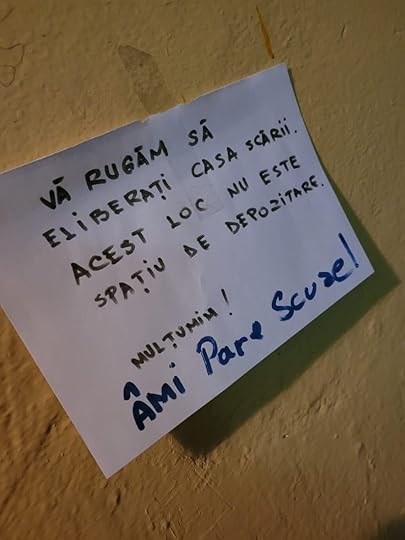 VĂ RUGĂM SĂ
ELIBERAȚI CASA SCĂRII.
ACEST LOC NU ESTE
SPAȚIU DE DEPOZITARE.
MULȚUMIM!
ÂMI Pare Scuze!